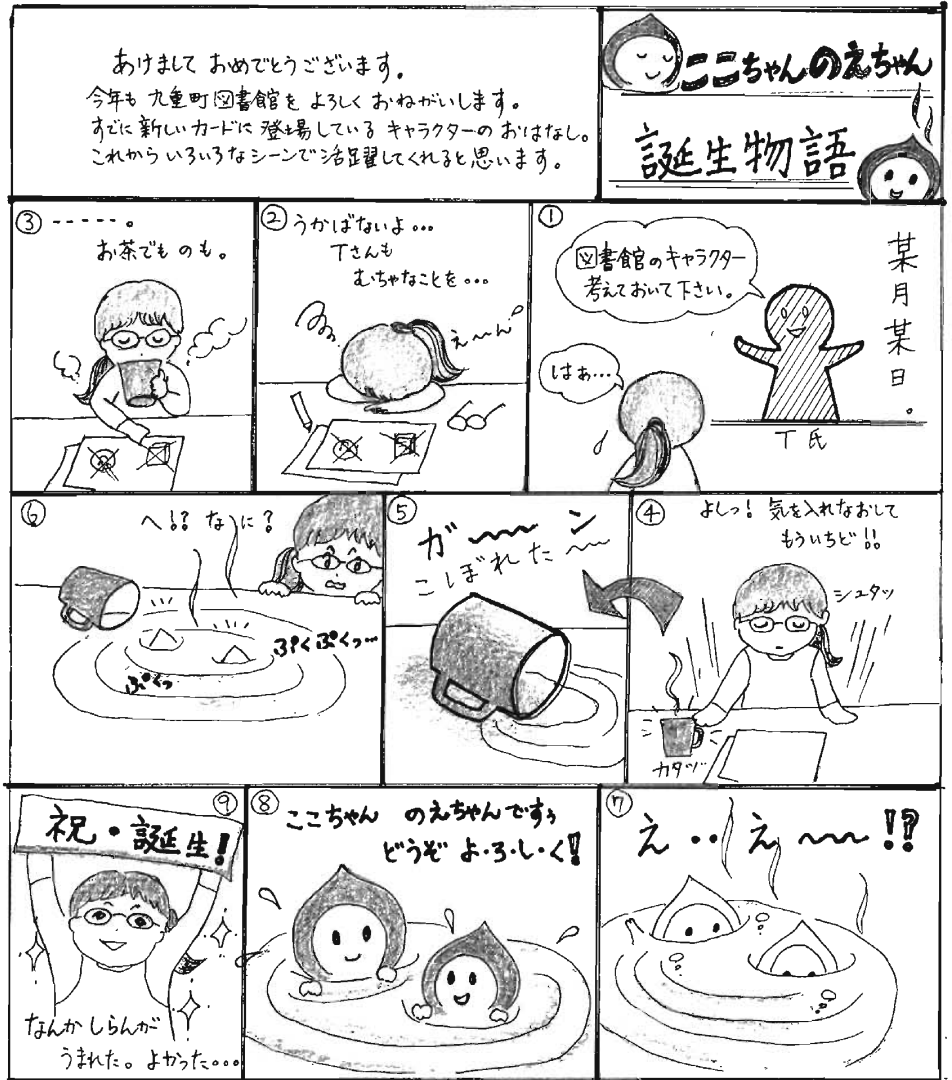 ここちゃんのえちゃん
誕生物語
あけまして おめでとうございます。
今年も 九重町図書館を よろしく おねがいします。
すでに新しいカードに登場しているキャラクターの おはなし。
これから いろいろなシーンで活躍してくれると思います。
①
某月某日。
図書館のキャラクター
考えておいて下さい。
はぁ…
T氏
②
うかばないよ…
Tさんも
むちゃなことを…
え〜ん
③
-----。
お茶でも のも。
④
よしっ! 気を入れなおして
もういちど!!
シュタッ
カタッ
⑤
ガ〜〜ン
こぼれた〜〜
⑥
へ!? なに?
ぷくぷくっ…
ぷくっ
⑦
え・・え〜〜!?
⑧
ここちゃん のえちゃんですぅ
どうぞ よ・ろ・し・く!
⑨
祝・誕生!
なんか しらんが
うまれた。よかった…